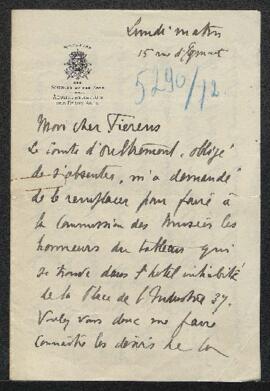 Lundi matin
15 rue d'Egmont
5290/12.
Mon cher Fierens
Le comte d'Oultremont, obligé
de s'absenter, m'a demandé
de le remplacer pour faire à
la Commission des Musées les
honneurs du tableau qui
se trouve dans l'hotel inhabité
de la Place de l'Industrie 37.
Voulez vous donc me faire
connaître les désirs de la